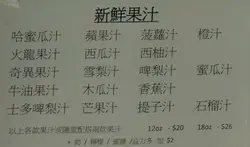 新鮮果汁
哈蜜瓜汁 蘋果汁 菠蘿汁 橙汁
火龍果汁 西瓜汁 西柚汁
奇異果汁 雪梨汁 啤梨汁 蜜瓜汁
牛油果汁 木瓜汁 香蕉汁
士多啤梨汁 芒果汁 提子汁 石榴汁
以上各款果汁或隨意配搭兩款果汁 12oz - $20 18oz - $26
加 奶 / 檸檬 / 蜜糖 / 益力多 加 $2